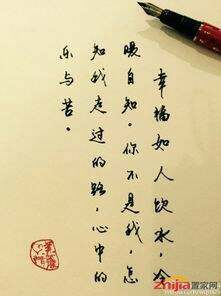 幸福如人饮水，冷
暖自知。你不是我，怎
知我走过的路，心中的
乐与苦。
zhijia置家网